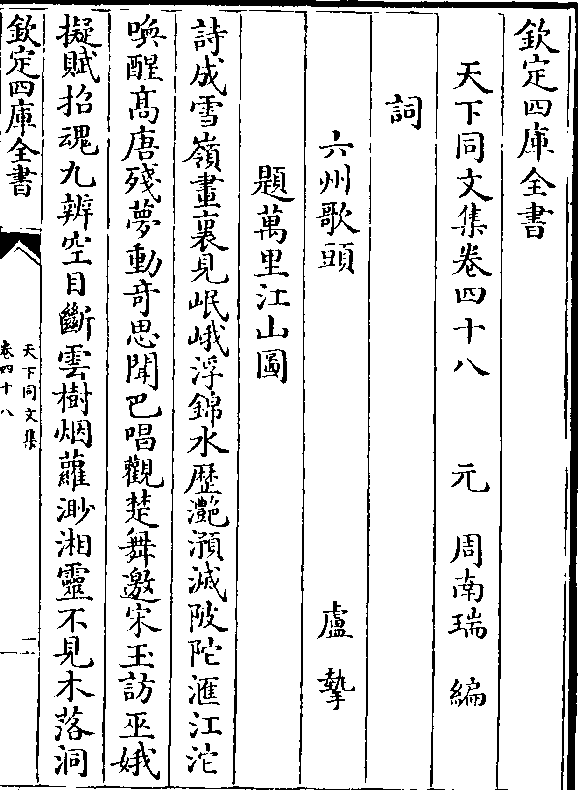 欽定四庫全書
天下同文集卷四十八　元　周南瑞　編
詞
六州歌頭　盧摯
題萬里江山圖
詩成雪嶺畫裏見岷峨浮錦水歴灩澦滅陂陀滙江沱
喚醒髙唐殘夢動竒思聞巴唱觀楚舞邀宋玉訪巫娥
擬賦招魂九辨空目斷雲樹烟蘿渺湘靈不見木落洞
欽定四庫全書
天下同文集
卷四十八
一